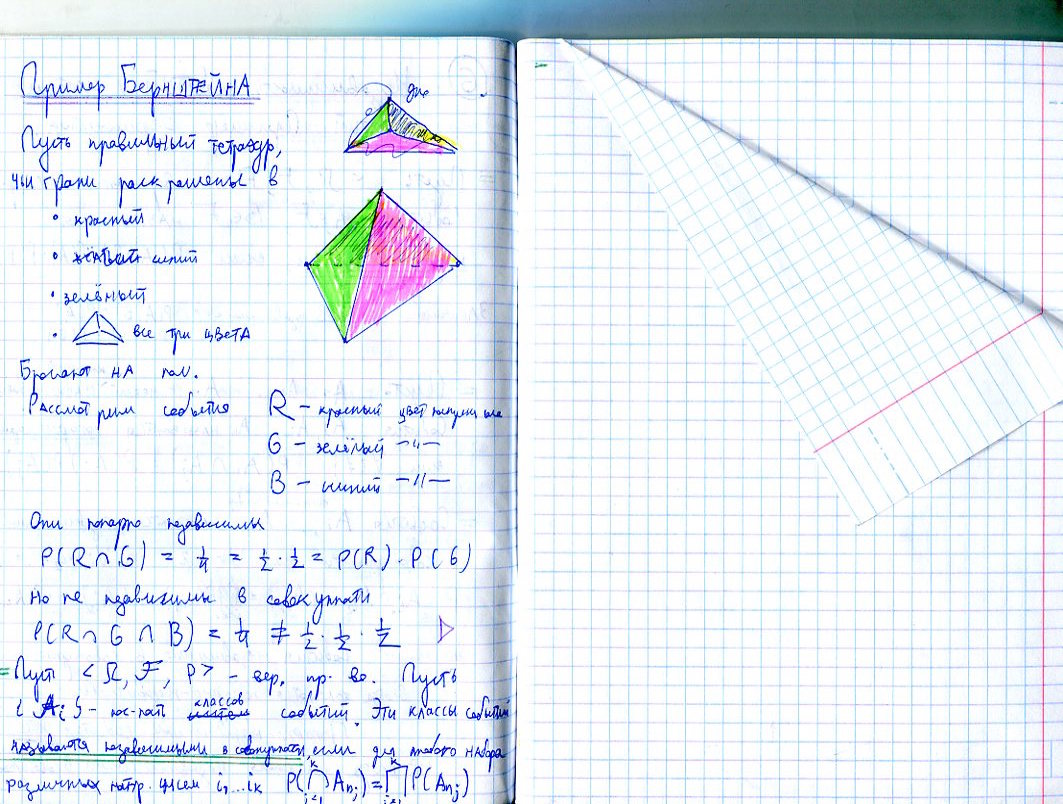 Пример Бернштейна
дно
Пусть правильный тетраэдр,
чьи грани раскрашены в
• красный
• синий
• зелёный
• все три цвета
Бросают на пол.
Рассмотрим события R – красный цвет
G – зелёный –"–
B – синий –"–
Они попарно независимы
P(R∩G) = 1/4 = 1/2 · 1/2 = P(R) · P(G)
Но не независимы в совокупности
P(R∩G∩B) = 1/4 ≠ 1/2 · 1/2 · 1/2
Пусть <Ω, F, P> – вер. пр-во. Пусть
{Ai} – пос-ть классов событий. Эти классы событий
называются независимыми в совокупности, если для любого набора
различных натр. чисел i1...ik P(⋂ Anj) = ∏ P(Anj)